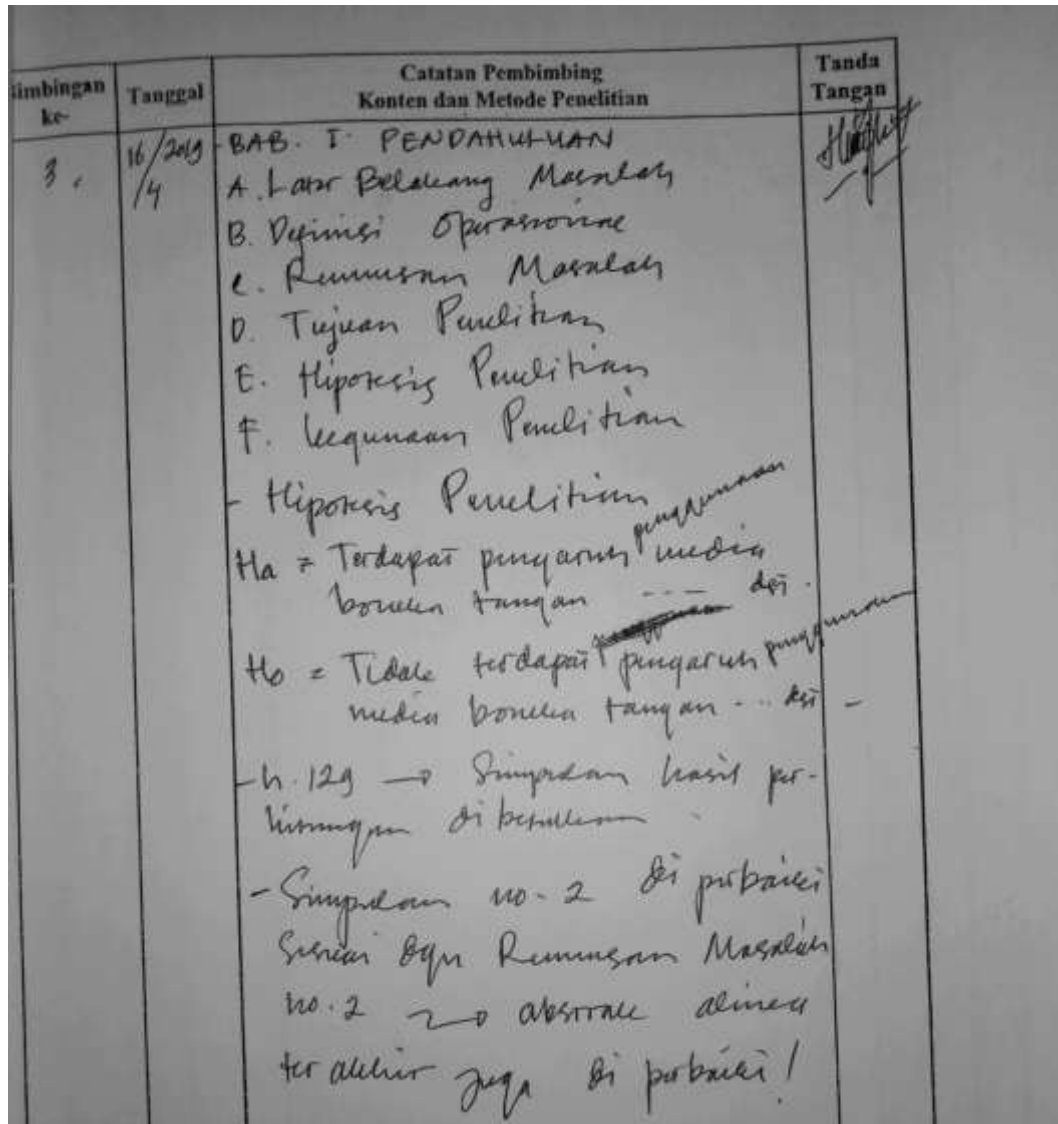 imbingan ke-
Tanggal
Catatan Pembimbing
Konten dan Metode Penelitian
Tanda Tangan
3.
16/4 2019
- BAB. I. PENDAHULUAN
A. Latar Belakang Masalah
B. Definisi Operasional
C. Rumusan Masalah
D. Tujuan Penelitian
E. Hipotesis Penelitian
F. Kegunaan Penelitian
- Hipotesis Penelitian
Ha = Terdapat pengaruh penggunaan media
boneka tangan ---- dst.
Ho = Tidak terdapat pengaruh penggunaan
media boneka tangan --- dst -
- h. 129 → Simpulan hasil per-
hitungan dibetulkan.
- Simpulan no. 2 di perbaiki
sesuai dgn Rumusan Masalah
no. 2 → abstrak alinea
terakhir juga di perbaiki!